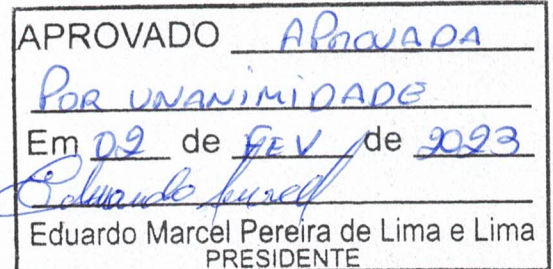 APROVADO APROVADA
POR UNANIMIDADE
Em 02 de FEV de 2023
Eduardo Marcel
Eduardo Marcel Pereira de Lima e Lima
PRESIDENTE